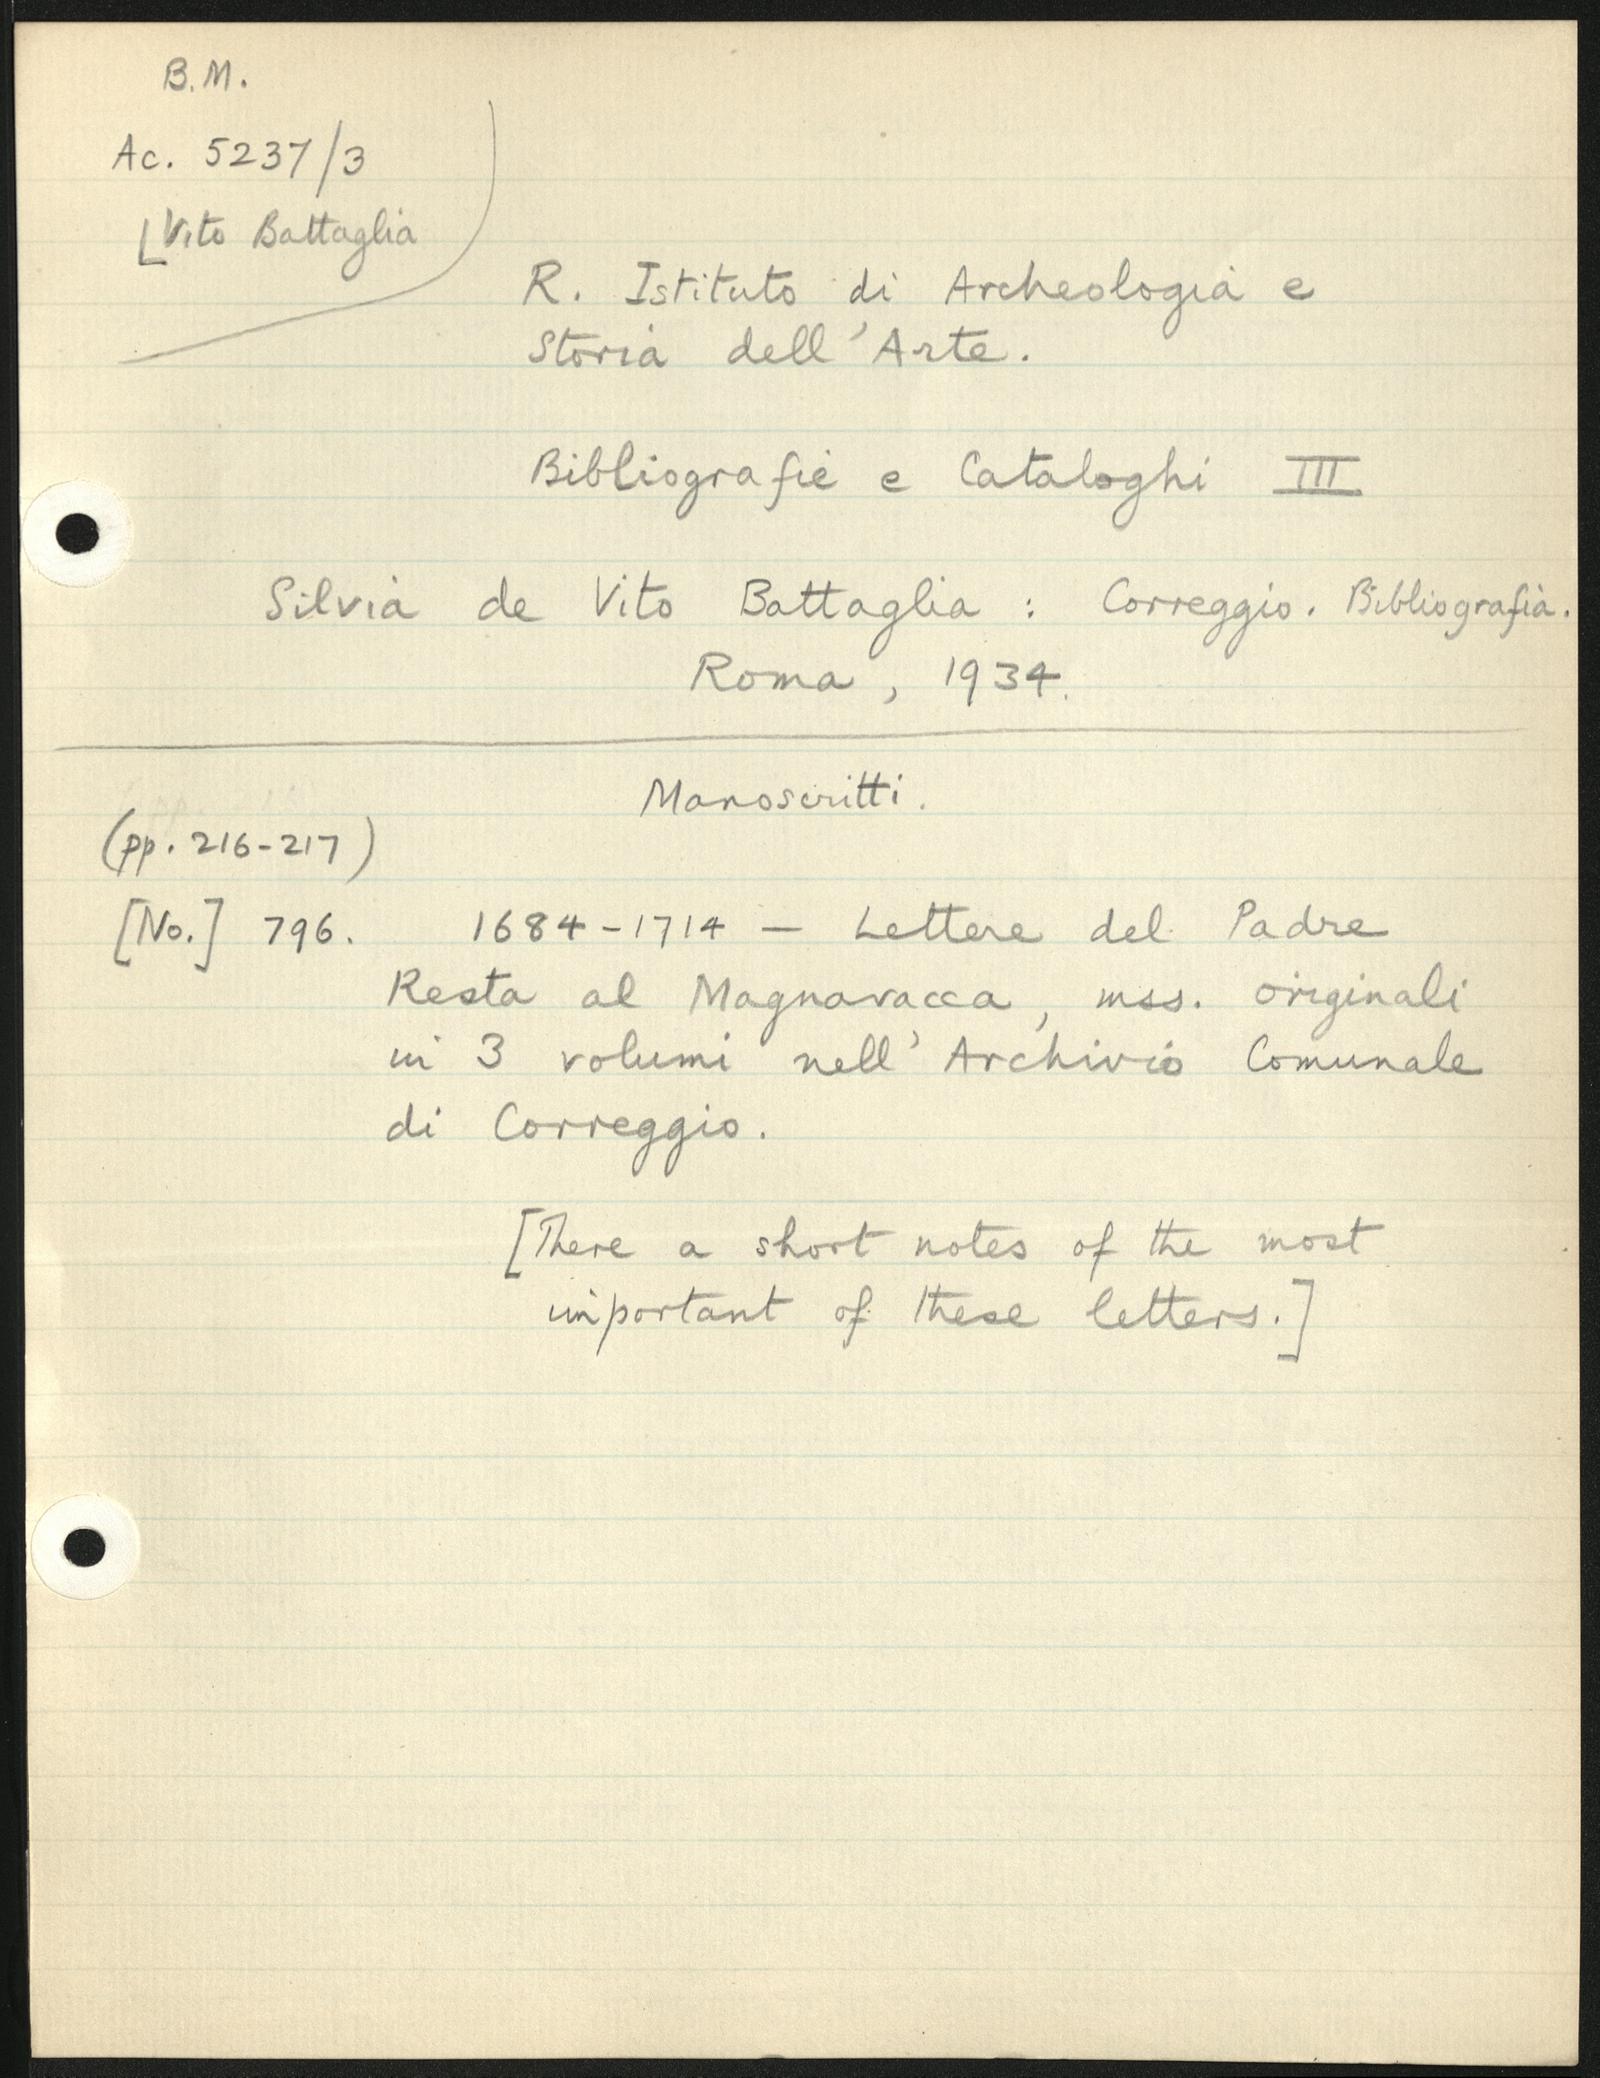 B.M.
Ac. 5237/3
[Vito Battaglia
R. Istituto di Archeologia e
Storia dell'Arte.
Bibliografie e Cataloghi III
Silvia de Vito Battaglia : Correggio. Bibliografia.
Roma, 1934.
Manoscritti.
(pp. 216-217)
[No.] 796. 1684-1714 — Lettere del Padre
Resta al Magnavacca, mss. originali
in 3 volumi nell'Archivio Comunale
di Correggio.
[There a short notes of the most
important of these letters.]